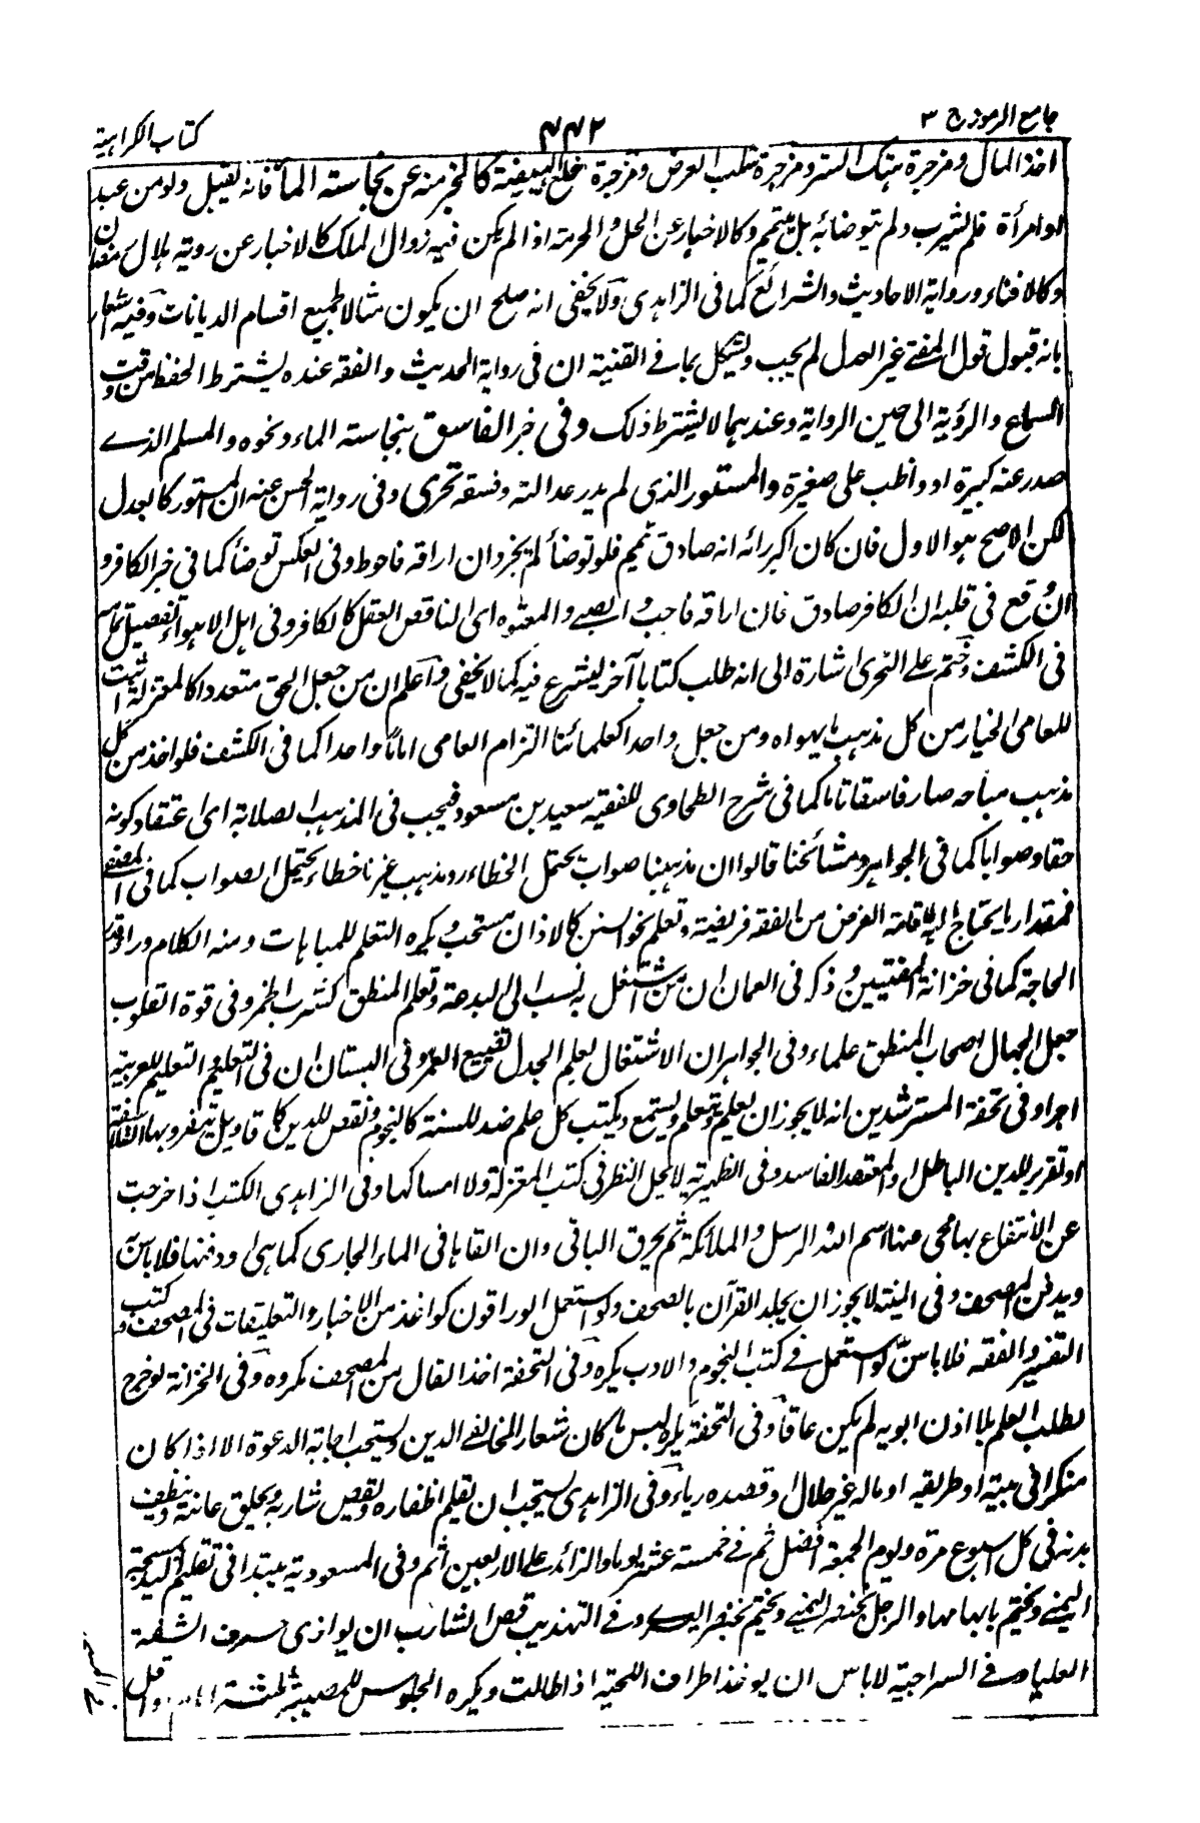 جامع الرموز ج ٣
٤٤٢
كتاب الكراهية
اخذ المال ومزجرة بهتك الستر ومزجرة بثلب العرض ومزجرة بخلع البيضة كالخبر منه عن نجاسته الماء فانه يقبل ولو من عبد
او امرأة فلم يشرب ولم يتوضأ به بل يتيمم وكالاخبار عن الحل والحرمة اذا لم يكن فيه زوال الملك كالاخبار عن روية هلال رمضان
وكالافتاء ورواية الاحاديث والشرائع كما في الزاهدى ولا يخفى انه صلح ان يكون مثالا لجميع اقسام الديانات وفيه اشعار
بانه قبول قول المفتى غير العدل لم يجب ويشكل بما في القنية ان في رواية الحديث والفقه عنده يشترط الحفظ من وقت
السماع والرؤية الى حين الرواية وعندهما لا يشترط ذلك وفى خبر الفاسق بنجاسة الماء ونحوه والمسلم الذى
صدر عنه كبيرة او واظب على صغيرة والمستور الذى لم يدر عدالته وفسقه تحرى وفى رواية الحسن عنه ان المستور كالعدل
لكن الاصح هو الاول فان كان اكبر رائه انه صادق تيمم فلو توضأ لم يجز وان اراقه فاحوط وفى العكس توضأ كما في خبر الكافر و
ان وقع في قلبه ان الكافر صادق فان اراقه فاحب والصبى والمعتوه اى الناقص العقل كالكافر وفى اهل الاهواء تفصيل تمامه
في الكشف وختم على التحرى اشارة الى انه طلب كتابا آخر ليشرع فيه كما لا يخفى واعلم ان من جعل الحق متعددا كالمعتزلة اثبت
للعامى الخيار من كل مذهب ما يهواه ومن جعل واحدا كعلمائنا الزام العامى اماما واحدا كما في الكشف فلو اخذ من كل
مذهب مباحه صار فاسقا تاما كما في شرح الطحاوى للفقيه سعيد بن مسعود فيجب في المذهب الصلابة اى اعتقاد كونه
حقا وصوابا كما في الجواهر ومشائخنا قالوا ان مذهبنا صواب يحتمل الخطاء ومذهب غيرنا خطاء يحتمل الصواب كما في المصفى
فمقدار ما يحتاج اليه لاقامة الفرض من الفقه فريضة وتعلم نحو السنن كالاذان مستحب ويكره التعلم للمباهات ومنه الكلام وراء قدر
الحاجة كما في خزانة المفتيين وذكر في العمان ان من اشتغل به نسب الى البدعة وتعلم المنطق كشرب الخمر وفى قوة القلوب
جعل الجهال اصحاب المنطق علماء وفى الجواهر ان الاشتغال بعلم الجدل تضييع العمر وفى البستان ان في التعلم والتعليم للعربية
اجرا وفى تحفة المسترشدين انه لا يجوز ان يعلم ويتعلم ويستمع ويكتب كل علم ضد للسنة كالنجوم ونقص للدين كاقاويل يتفرد بها الفلاسفة
او تقرير للدين الباطل والمعتقد الفاسد وفى الظهيرية لا يحل النظر في كتب المعتزلة ولا امساكها وفى الزاهدى الكتب اذا خرجت
عن الانتفاع بها محى منها اسم الله والرسل والملائكة ثم يحرق الباقى وان القاها في الماء الجارى كما هى او دفنها فلا باس
ويدفن المصحف وفى المنية لا يجوز ان يجلد القرآن بالصحف ولو استعمل الوراقون كواغذ من الاخبار والتعليقات في المصحف وكتب
التفسير والفقه فلا باس ولو استعمل في كتب النجوم والادب يكره وفى التحفة اخذ الفال من المصحف مكروه وفى الخزانة لو خرج
لطلب العلم بلا اذن ابويه لم يكن عاقا وفى التحفة يكره لبس ما كان شعار المخالف للدين ويستحب اجابة الدعوة الا اذا كان
منكرا في بيته او طريقه او ماله غير حلال او قصده رياء وفى الزاهدى يستحب ان يقلم اظفاره ويقص شاربه ويحلق عانته وينظف
بدنه في كل اسبوع مرة ويوم الجمعة افضل ثم في خمسة عشر يوما والزائد على الاربعين اثم وفى المسعودية يبتدأ في تقليم اليد بمسبحة
اليمنى ويختم بابهامها والرجل بخنصر اليمنى ويختم بخنصر اليسرى وفى التهذيب قص الشارب ان يوازى حرف الشفة
العليا وفى السراجية لا باس ان يوخذ اطراف اللحية اذا طالت ويكره الجلوس للمصيبة ثلثة ايام واقل